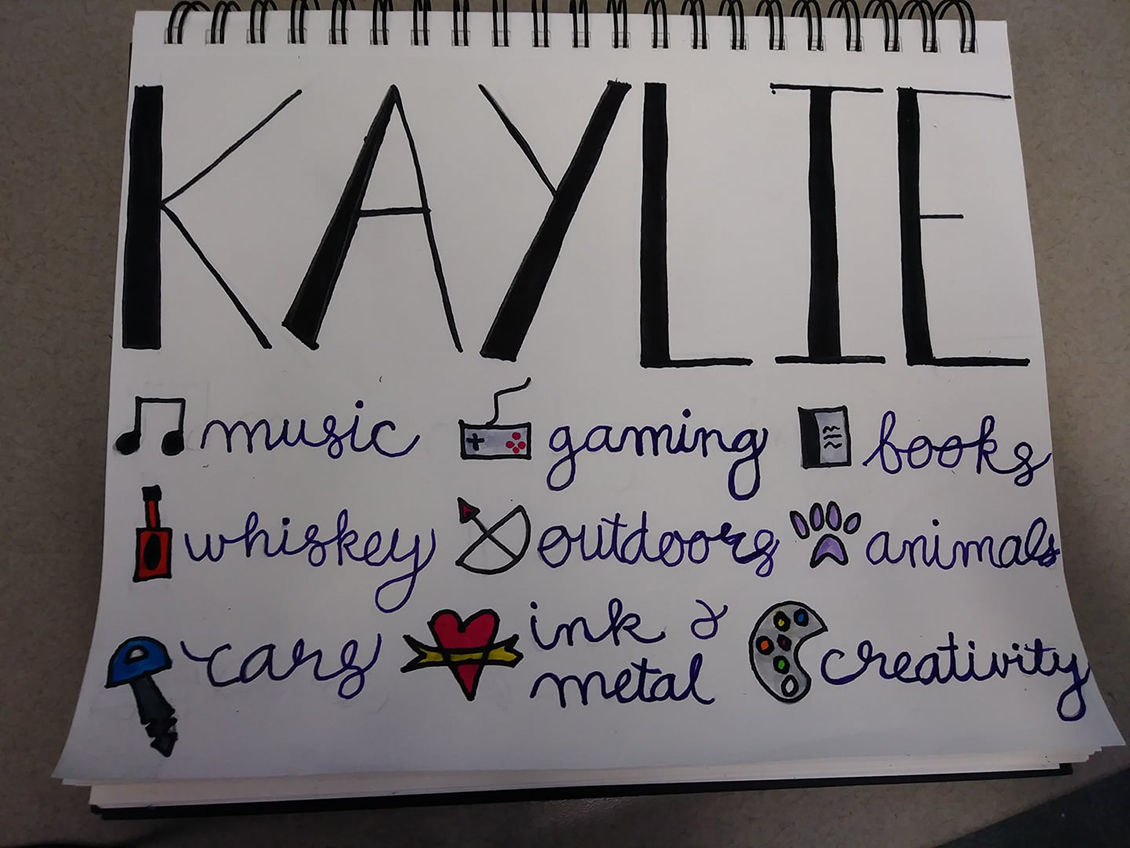 KAYLIE
music gaming books
whiskey outdoors animals
cars ink & metal creativity